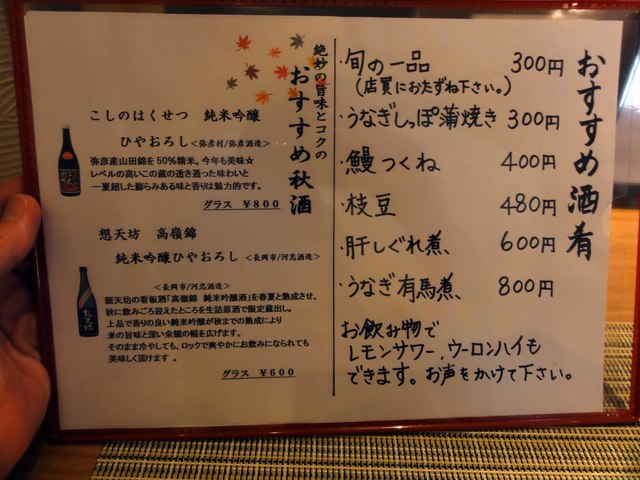 おすすめ酒肴
・旬の一品 300円
(店員におたずね下さい。)
・うなぎしっぽ蒲焼き 300円
・鰻つくね 400円
・枝豆 480円
・肝しぐれ煮、 600円
・うなぎ有馬煮、 800円
お飲み物で
レモンサワー、ウーロンハイも
できます。お声をかけて下さい。
絶妙の旨味とコクの
おすすめ秋酒
こしのはくせつ 純米吟醸
ひやおろし <弥彦村/弥彦酒造>
弥彦産山田錦を50%精米。今年も美味☆
レベルの高いこの蔵の透き通った味わいと
一夏超した膨らみある味と香りは魅力的です。
グラス ¥800
想天坊 高嶺錦
純米吟醸ひやおろし <長岡市/河忠酒造>
<長岡市/河忠酒造>
想天坊の看板酒「高嶺錦 純米吟醸酒」を春夏と熟成させ、
秋に飲みごろ迎えたところを生詰原酒で限定蔵出し。
上品で香りの良い純米吟醸が秋までの熟成により
米の旨味と深い余韻の幅を広げます。
そのまま冷やしても、ロックで爽やかにお飲みになられても
美味しく頂けます 。
グラス ¥600